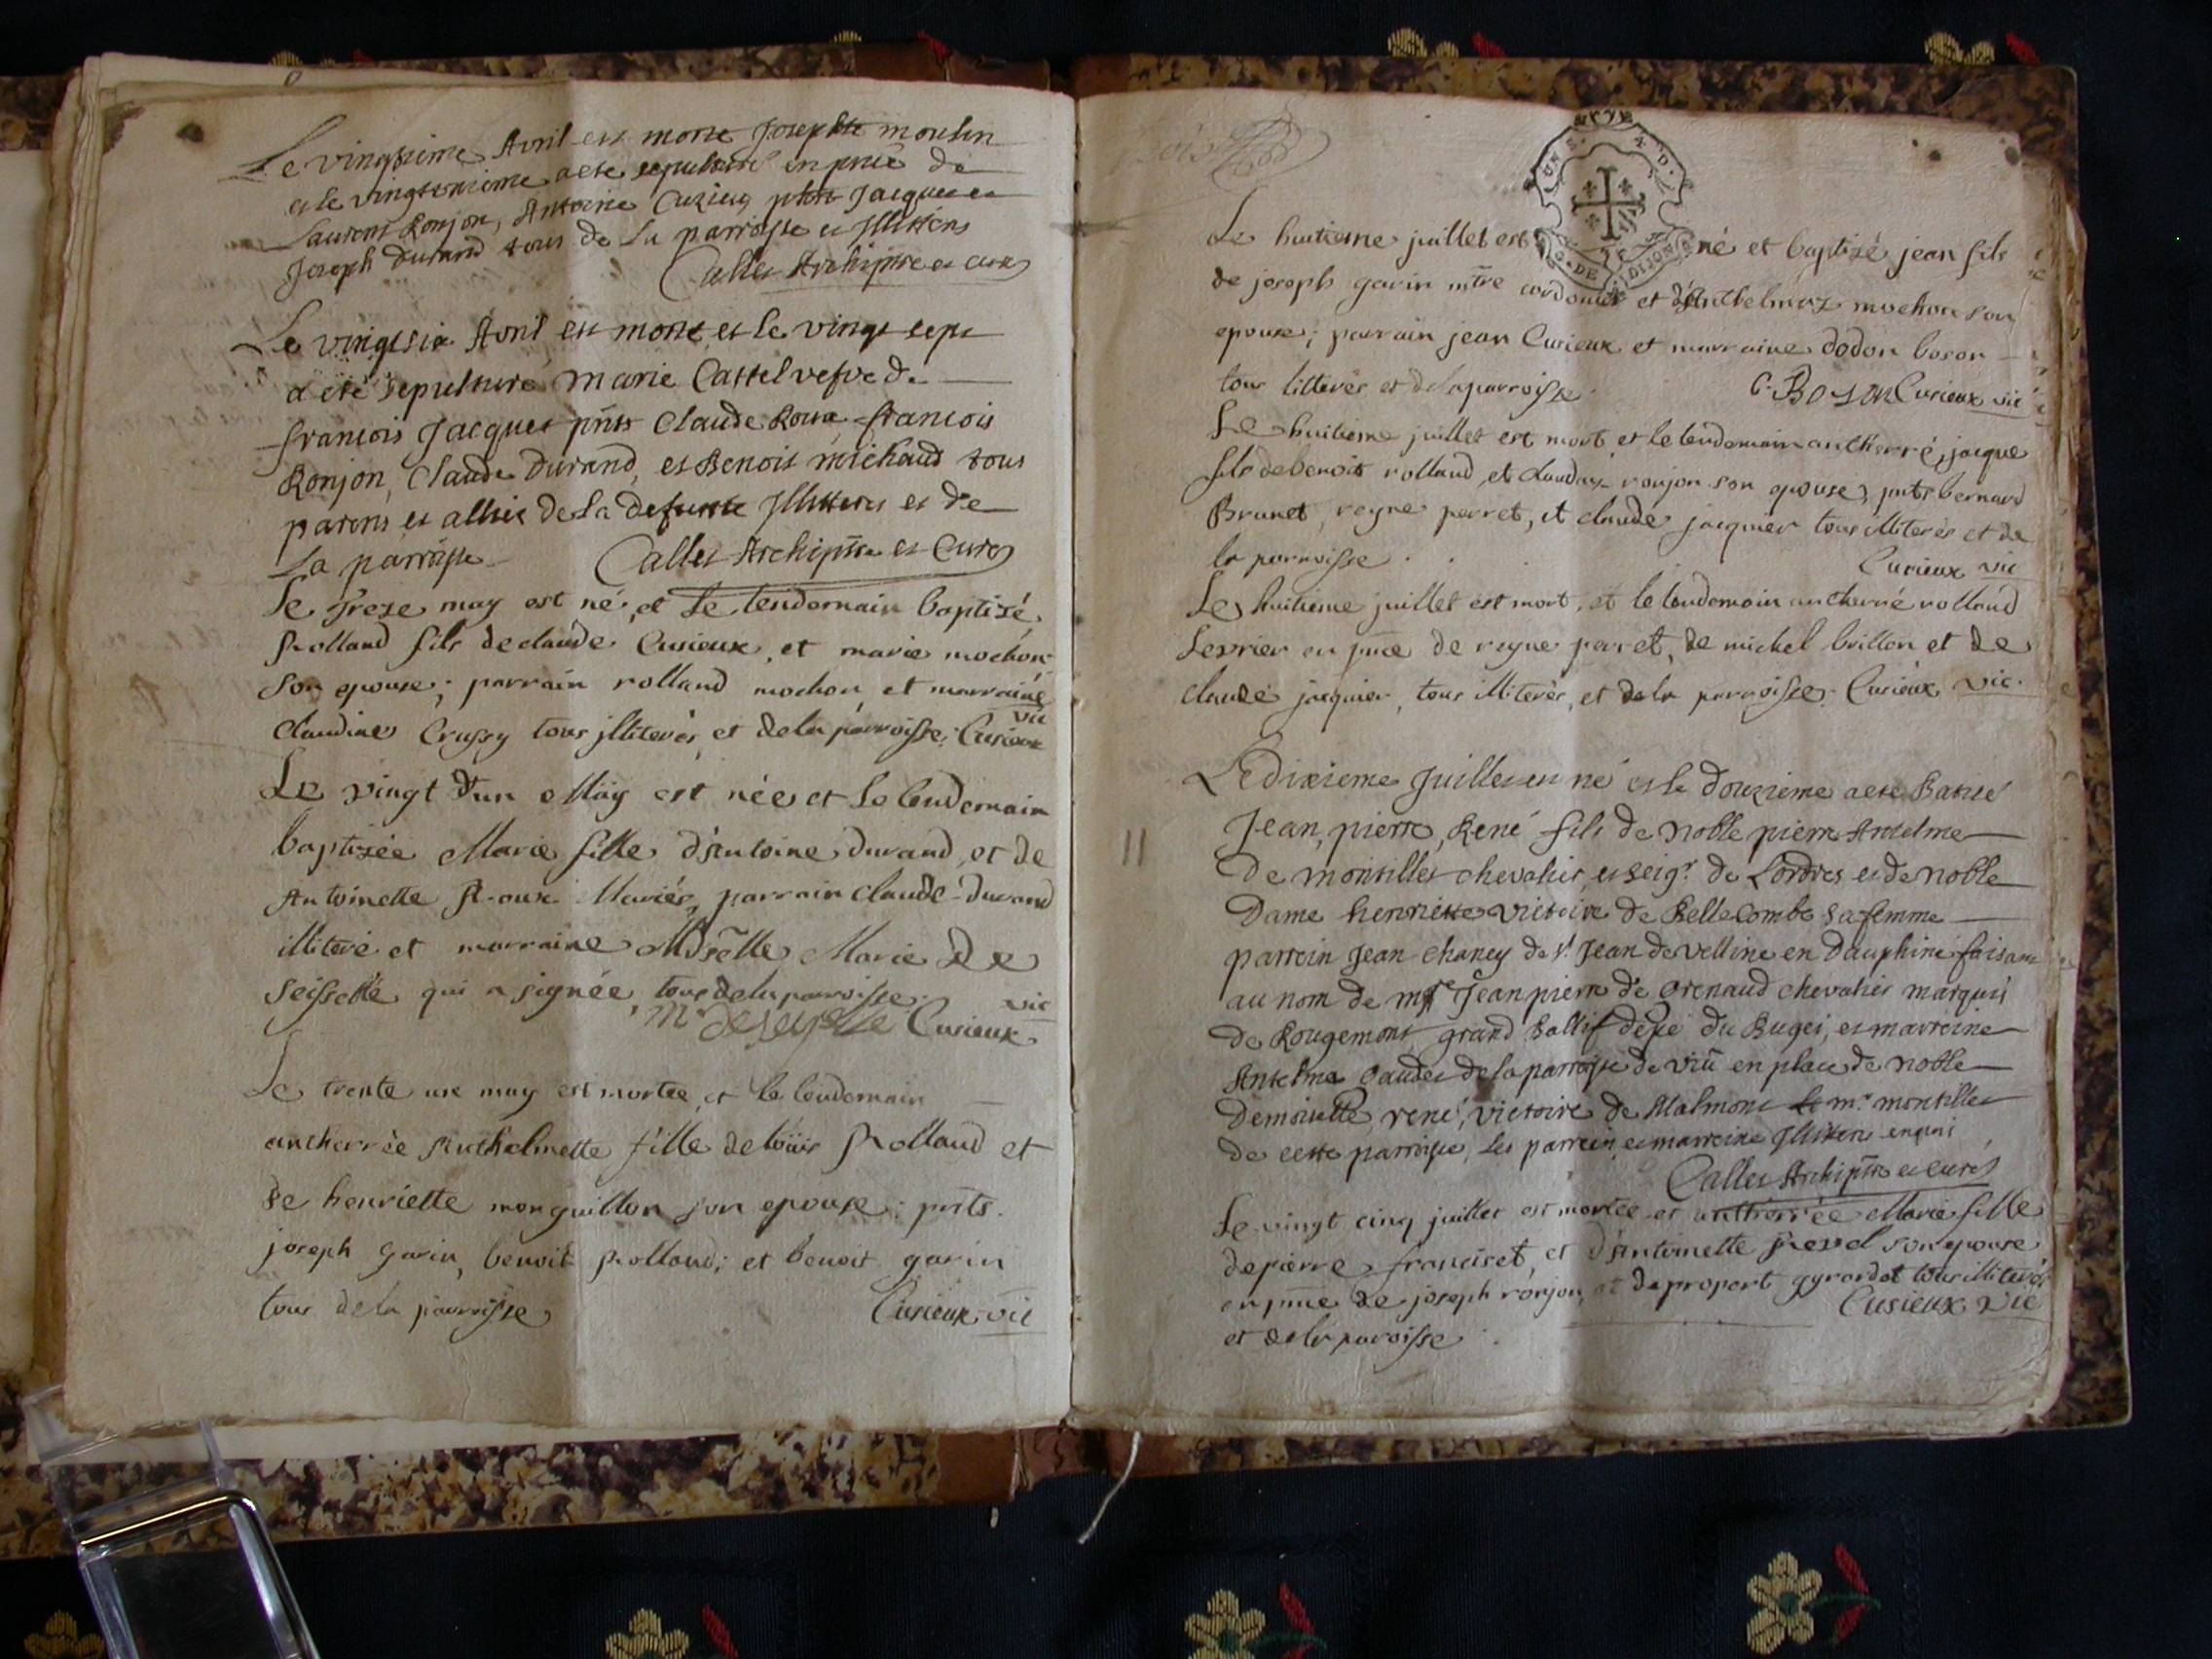 Le vingtieme Avril est morte Josephte moulin
et le vingtunieme a ete sepulturé en pnce de
Laurent Ronjon, Antoine Cuzieux Jacques et
Joseph Durand tous de la parroisse et Illitérés
Callet Archiptre et curé
Le vingt six Avril est morte et le vingt sept
a été sepulturé Marie Castel vefve de
francois Jacques pnts Claude Roux francois
Ronjon, Claude Durand, et Benoit michaud tous
parens et alliés de la defunte Illitterés et de
La parroisse Callet Archiptre et Curé
Le treze may est né, et le lendemain baptizé
Rolland fils de claude Cusieux, et marie mochon
son epouse; parrain rolland mochon et marraine
claudine Crussy tous jlliterés et de la parroisse. Cusieux
vic
Le vingt d'un May est née et le lendemain
baptizée Marie fille d'Antoine durand, et de
Antoinette Roux Mariés, parrain claude durand
illiteré et marraine Mdselle Marie De
Seisselle qui a signée, tous de la parroisse. vic
m de seyselle Cusieux
Le trente un may est mortee et le lendemain
antherrée Anthelmette fille de loüis Rolland et
de henriette monguillon son epouse: pnts.
joseph garin, benoit Rolland; et benoit garin
tous de la parroisse Cusieux vic
UN S. 4 D.
G. DE DIJON
Le huitieme juillet est né et baptizé jean fils
de joseph garin mtre cordonier et d'Anthelmaz mochon son
epouse; parrain jean Cusieux et marraine dodon boson
tous litterés et de la parroisse C. Boson Cusieux vic
Le huitieme juillet est mort et le lendemain antherré, jacque
fils de benoit rolland, et claudaz ronjon son epouse, pnts bernard
Brunet, reyne perret, et claude jacquier tous illiterés et de
la parroisse. Cusieux vic
Le huitieme juillet est mort, et le lendemain antherré rolland
Levrier en pnce de reyne perret, de michel brillon et de
claude jacquier, tous illiterés, et de la parroisse. Cusieux vic.
Le dixieme Juillet est né et le douzieme a ete Batisé
11 Jean, pierre, René fils de Noble pierre Anselme
De montillet chevalier, et seigr. de Lordres et de Noble
Dame henriette victoire de Bellecombe sa femme
parrein Jean chaney de St. Jean de Velline en Dauphiné faisant
au nom de mre Jean pierre de Grenaud chevalier marquis
de Rougemont grand Ballif d'epé du Bugei, et marreine
Antelma Gaudet de la parroisse de viu en place de Noble
Demoiselle rené, victoire de Malmont mr. montillet
de cette parroisse, Les parrein et marreine Illitterés enquis
Callet Archiptre et curé
Le vingt cinq juillet est mortee et antherrée Marie fille
de pierre franciset, et d'Antoinette jievel son epouse
en pnce de joseph ronjon, et de propert gyrardet tous illiterés
et de la paroisse. Cusieux vic